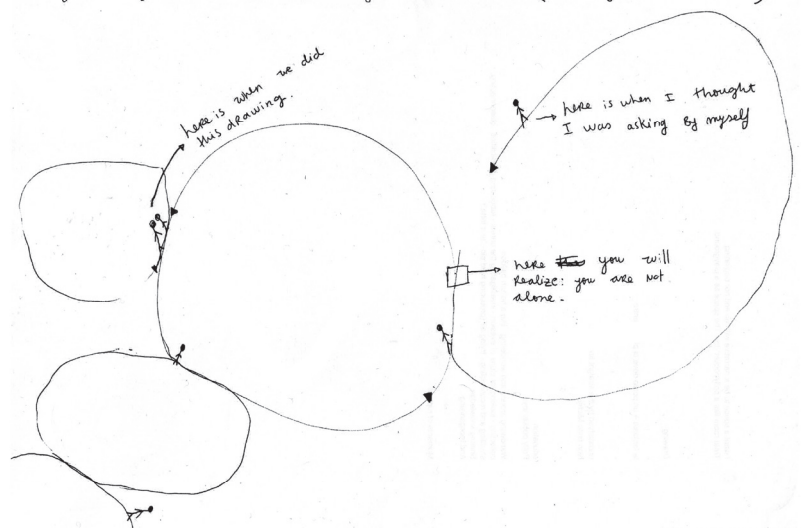 here is when we did
this drawing.
→ here is when I thought
I was asking By myself
here you will
Realize: you are not
alone-